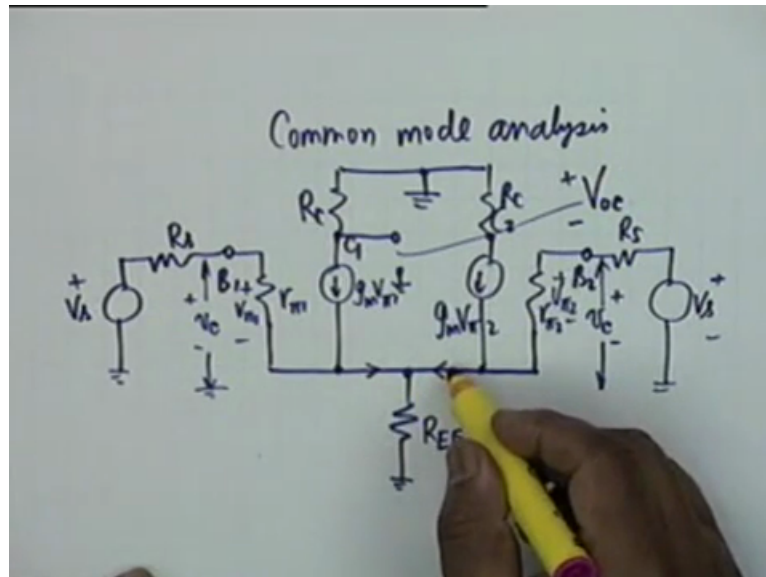 Common mode analysis
RC
RC
+ Voc -
C1
C2
Rs
RS
+ Vs
B1
B2
+ vc -
+ vπ1 -
rπ1
gmVπ1
gmVπ2
rπ2
+ vπ2 -
+ vc -
+ Vs -
REE